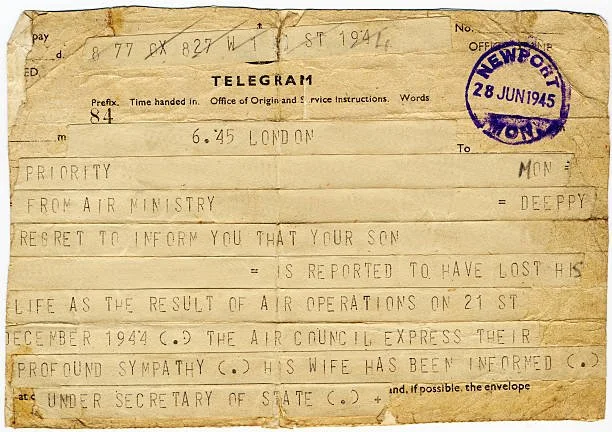 pay
No.
d.
8 77 OX 827 W 1 ST 1944
OFFICE STAMP
ED.
TELEGRAM
NEWPORT
28 JUN 1945
MON.
Prefix. Time handed in. Office of Origin and Service Instructions. Words
84
m
6.45 LONDON
To
PRIORITY
MON =
= FROM AIR MINISTRY
= DEEPPY
REGRET TO INFORM YOU THAT YOUR SON
= IS REPORTED TO HAVE LOST HIS
LIFE AS THE RESULT OF AIR OPERATIONS ON 21 ST
DECEMBER 1944 (.) THE AIR COUNCIL EXPRESS THEIR
PROFOUND SYMPATHY (.) HIS WIFE HAS BEEN INFORMED (.)
and, if possible, the envelope
UNDER SECRETARY OF STATE (.) +